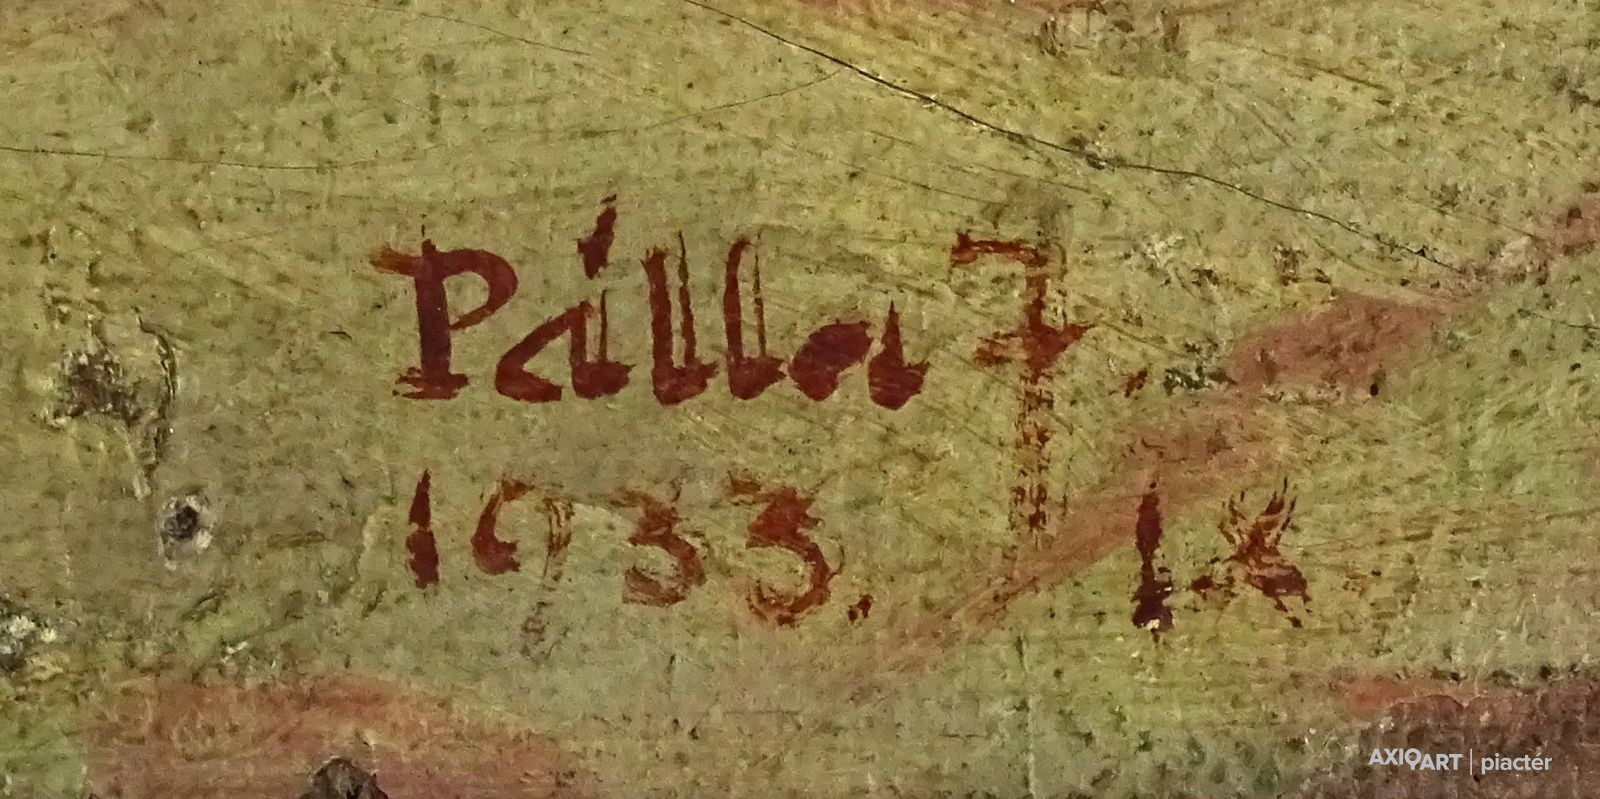 Pálla J.
1933. 18
AXIOART | piactér